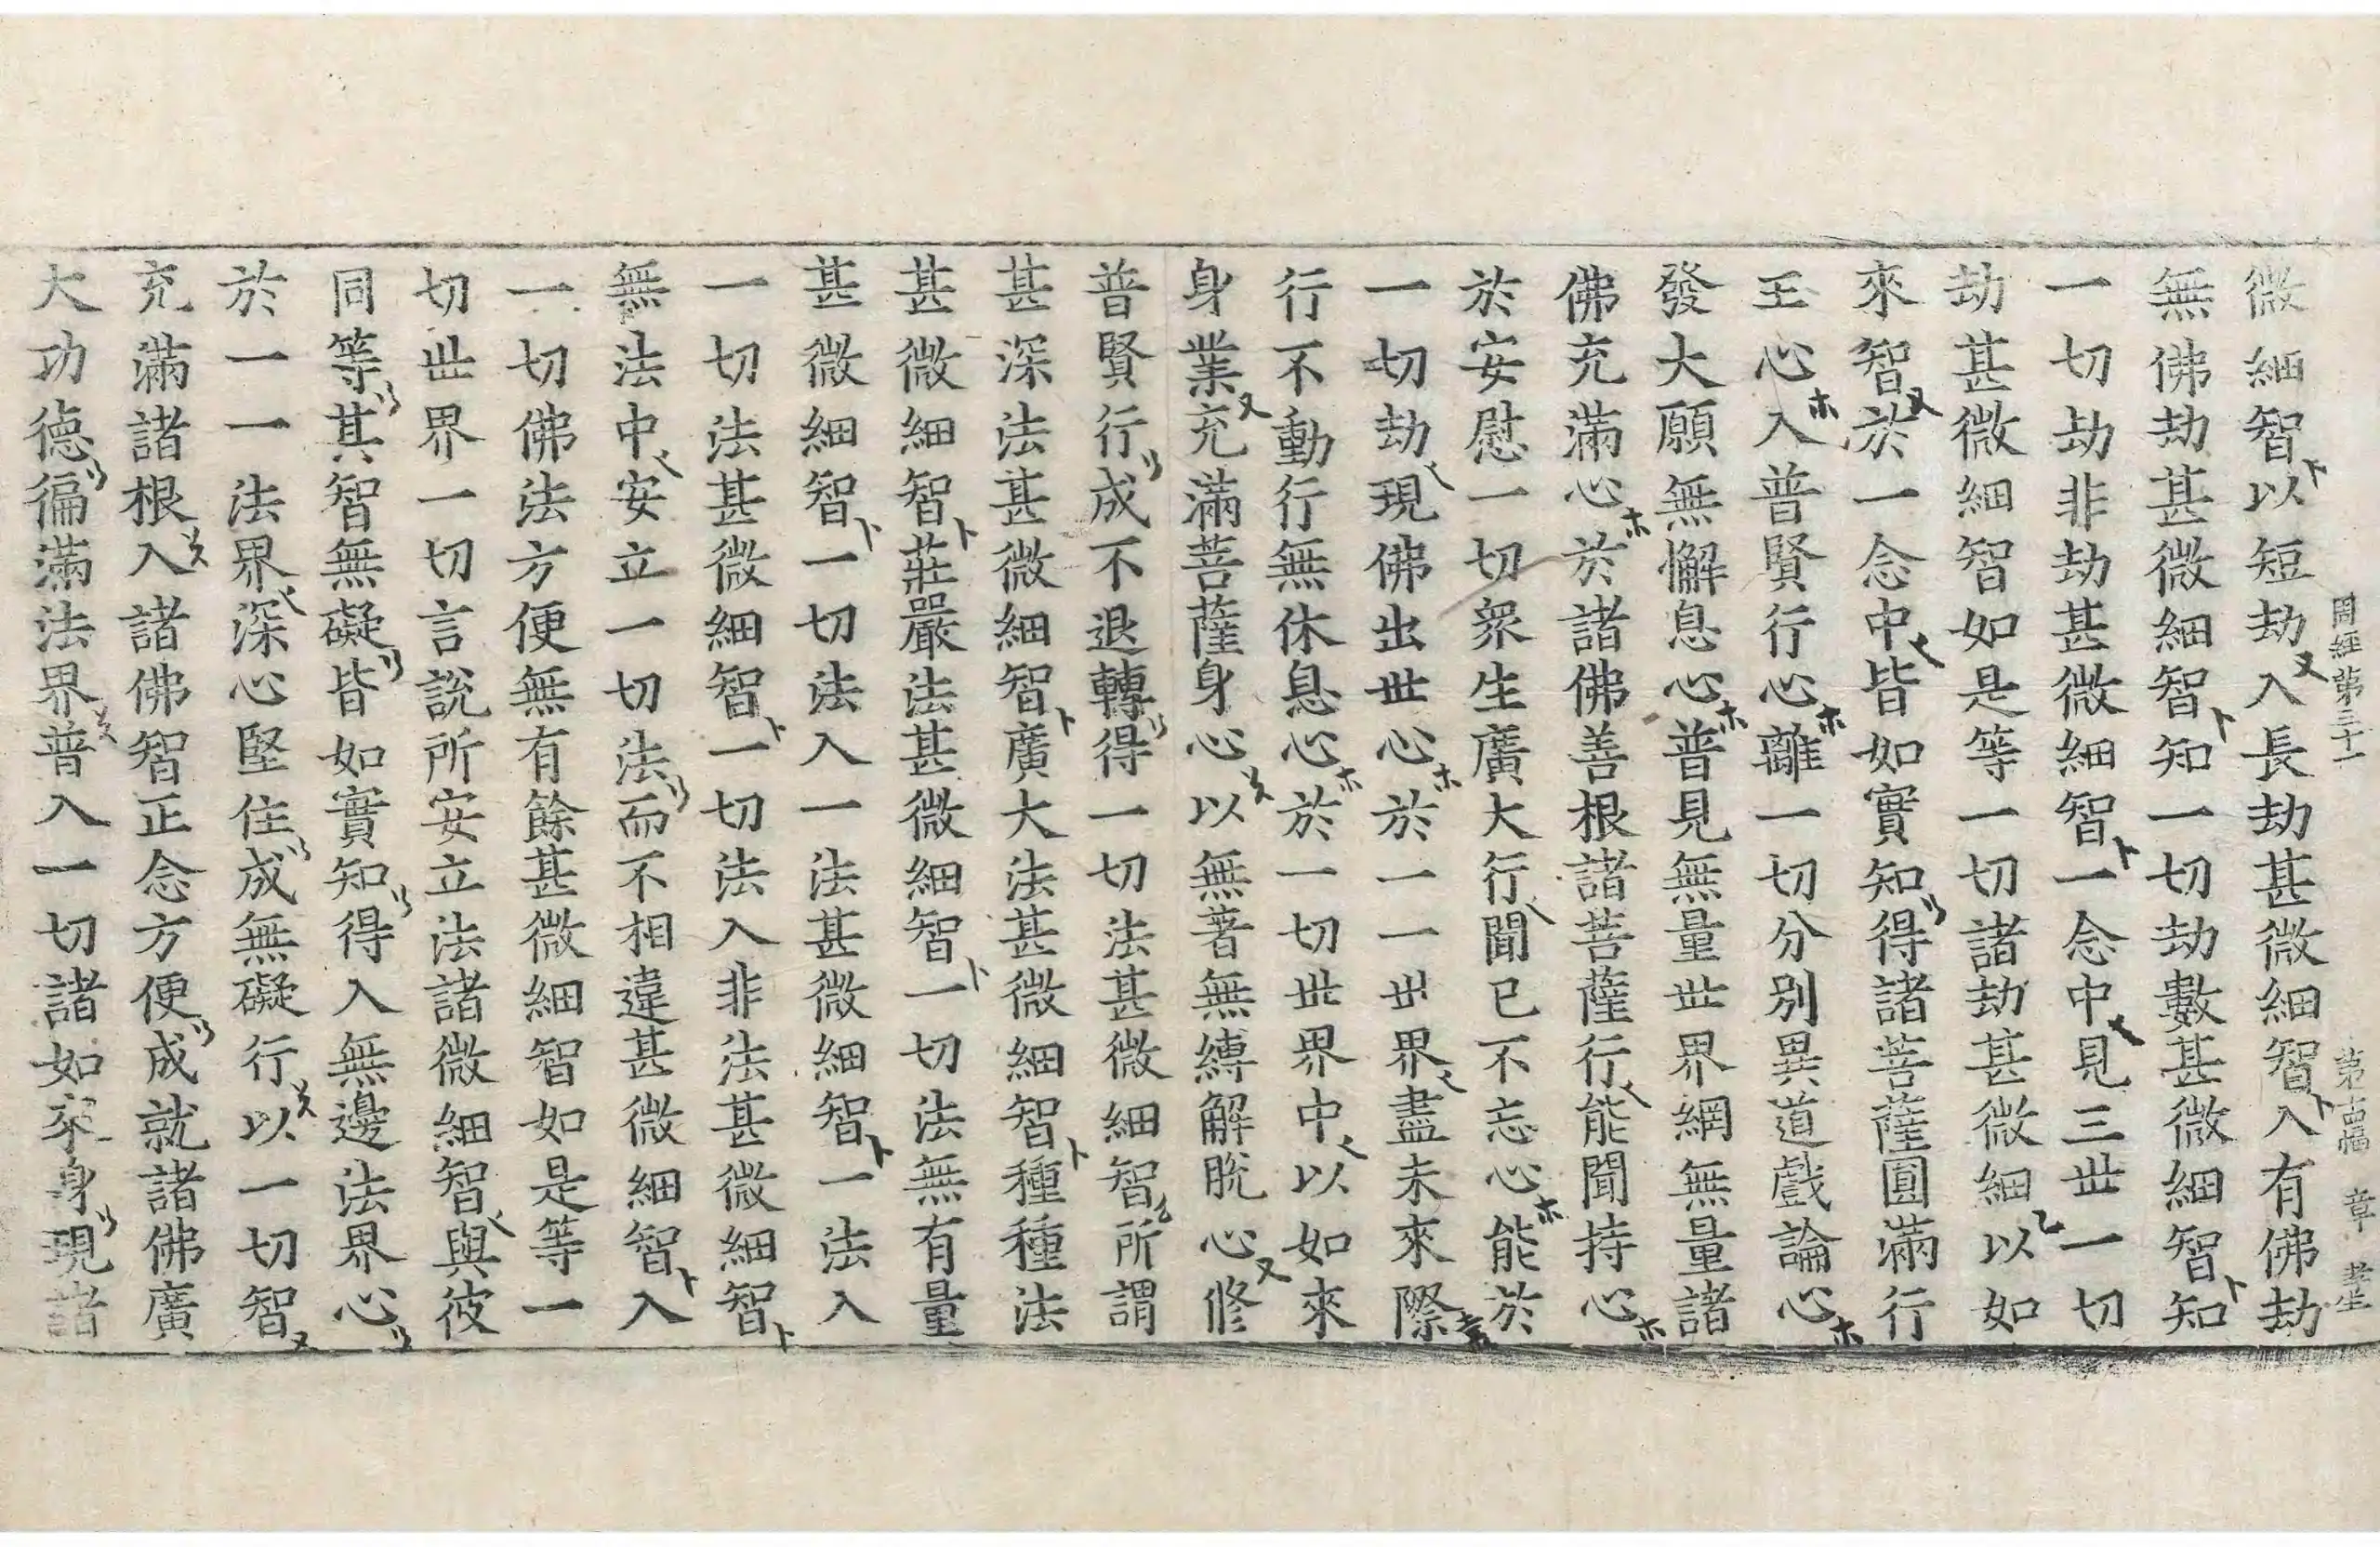 周經第三十一 第古幅 章 孝生
微細智以短劫入長劫甚微細智入有佛劫
無佛劫甚微細智知一切劫數甚微細智知
一切劫非劫甚微細智一念中見三世一切
劫甚微細智如是等一切諸劫甚微細以如
來智於一念中皆如實知得諸菩薩圓滿行
王心入普賢行心離一切分別異道戲論心
發大願無懈息心普見無量世界網無量諸
佛充滿心於諸佛善根諸菩薩行能聞持心
於安慰一切衆生廣大行聞已不忘心能於
一切劫現佛出世心於一一世界盡未來際
行不動行無休息心於一切世界中以如來
身業充滿菩薩身心以無著無縛解脫心修
普賢行成不退轉得一切法甚微細智所謂
甚深法甚微細智廣大法甚微細智種種法
甚微細智莊嚴法甚微細智一切法無有量
甚微細智一切法入一法甚微細智一法入
一切法甚微細智一切法入非法甚微細智
無法中安立一切法而不相違甚微細智入
一切佛法方便無有餘甚微細智如是等一
切世界一切言說所安立法諸微細智與彼
同等其智無礙皆如實知得入無邊法界心
於一一法界深心堅住成無礙行以一切智
充滿諸根入諸佛智正念方便成就諸佛廣
大功德徧滿法界普入一切諸如來身現諸